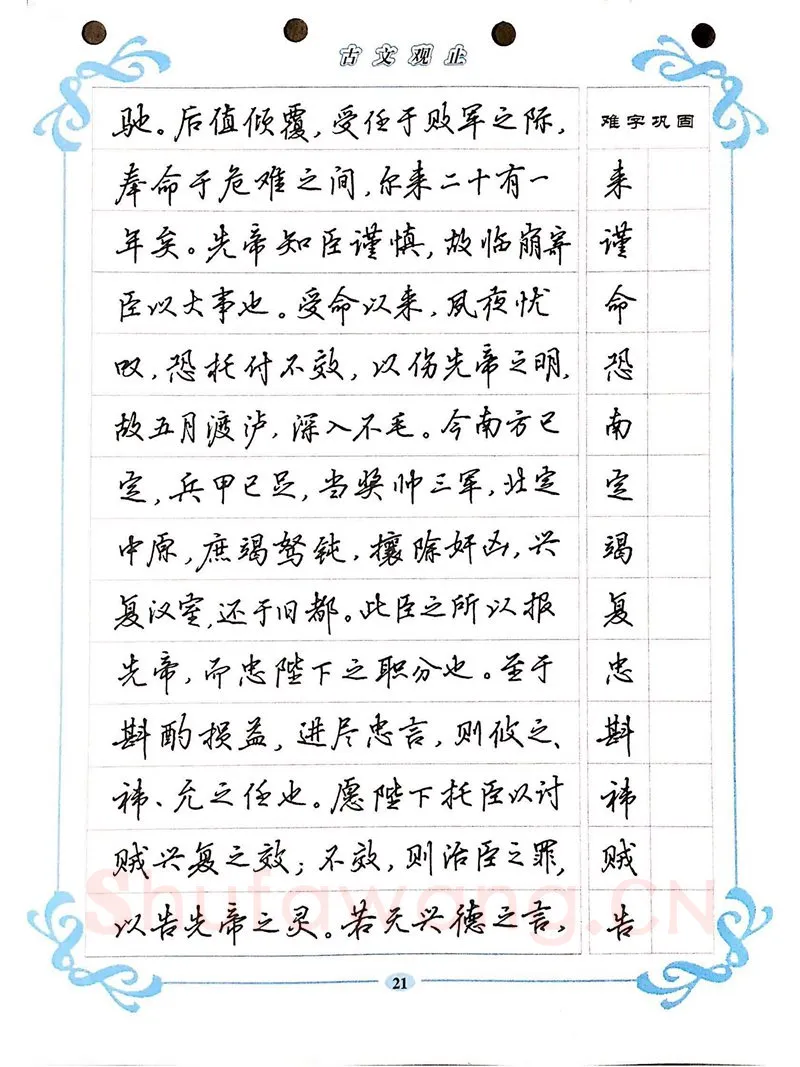 古文观止
驰。后值倾覆,受任于败军之际,
奉命于危难之间,尔来二十有一
年矣。先帝知臣谨慎,故临崩寄
臣以大事也。受命以来,夙夜忧
叹,恐托付不效,以伤先帝之明,
故五月渡泸,深入不毛。今南方已
定,兵甲已足,当奖帅三军,北定
中原,庶竭驽钝,攘除奸凶,兴
复汉室,还于旧都。此臣之所以报
先帝,而忠陛下之职分也。至于
斟酌损益,进尽忠言,则攸之、
祎、允之任也。愿陛下托臣以讨
贼兴复之效;不效,则治臣之罪,
以告先帝之灵。若无兴德之言,
难字巩固
来
谨
命
恐
南
定
竭
复
忠
斟
祎
贼
告
Shufawang.CN
21